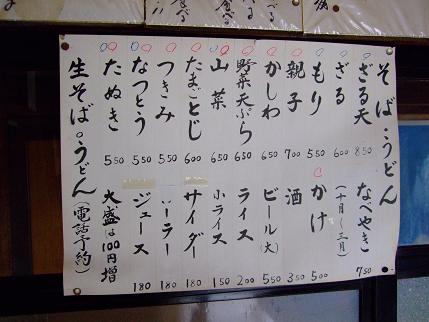 そば・うどん
ざる天 850
ざる 600
もり 550
親子 700
かしわ 650
野菜天ぷら 650
山菜 650
たまごとじ 600
つきみ 550
なつとう 550
たぬき 550
なべやき 750
(十月~三月)
かけ 500
酒 350
ビール(大) 550
ライス 200
小ライス 150
サイダー 180
コーラー 180
ジュース 180
大盛は100円増
生そば。うどん(電話予約)